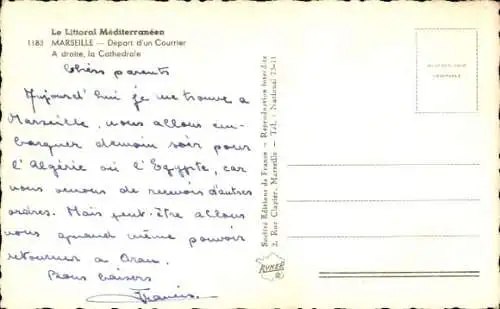 Le Littoral Méditerranéen
1183 MARSEILLE — Départ d'un Courrier
A droite, la Cathédrale
Chers parents
Aujourd'hui je me trouve a
Marseille, nous allons em-
barquer demain soir pour
l'Algérie ou l'Egypte, car
nous venons de recevoir d'autres
ordres. Mais peut-être allons
nous quand même pouvoir
retourner a Oran.
Bons baisers
Francis
Société Editions de France — Reproduction Interdite
2, Rue Clapier, Marseille — Tél. : National 73-11
RUNER